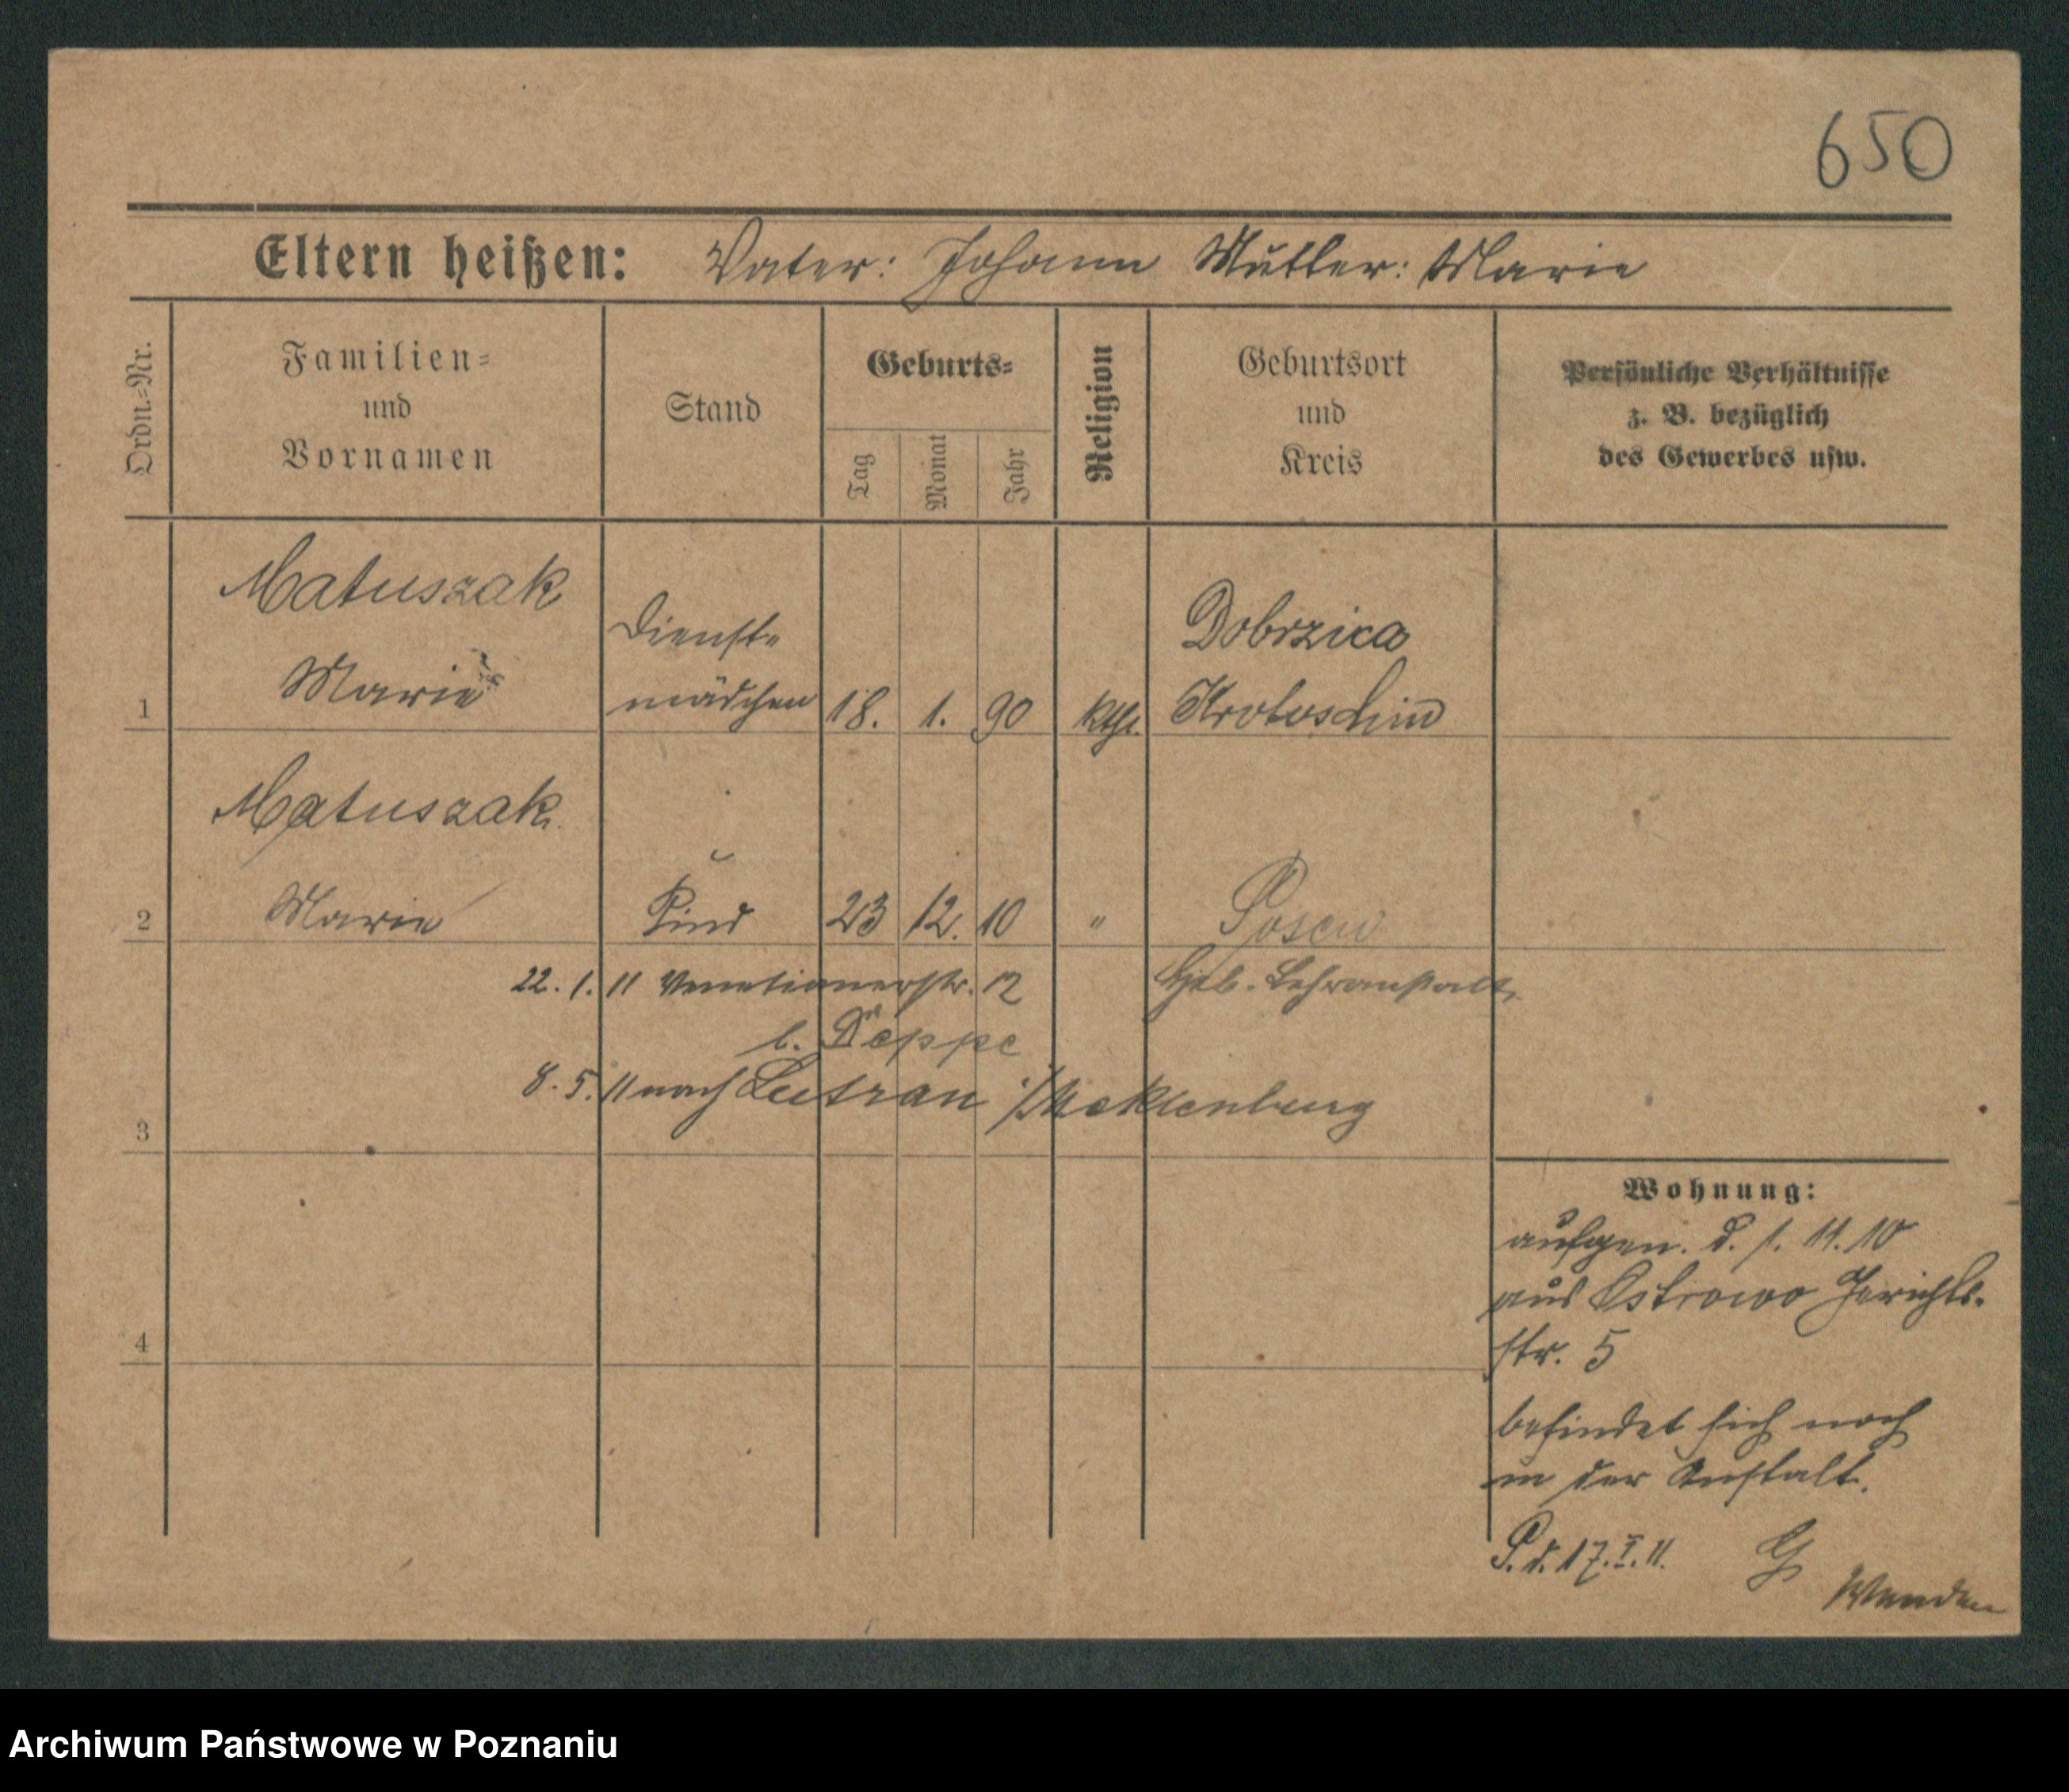 650
Eltern heißen: Vater: Johann Mutter: Marie
Ordn.-Nr.
Familien-
und
Vornamen
Stand
Geburts-
Tag
Monat
Jahr
Religion
Geburtsort
und
Kreis
Persönliche Verhältnisse
z. B. bezüglich
des Gewerbes usw.
1
Matuszak
Marie
Dienst-
mädchen
18. 1. 90
kth.
Dobrzica
Krotoschin
2
Matuszak
Marie
Kind
23 12. 10
"
Posen
Heb. Lehranstalt
22. 1. 11 Venetianerstr. 12
b. Deppe
8. 5. 11 nach Lutran i/Meklenburg
3
4
Wohnung:
aufgen. d. 1. 11. 10
aus Ostrowo Gerichts-
str. 5
befindet sich noch
in der Anstalt.
P. d. 17. I. 11. G
Wenden